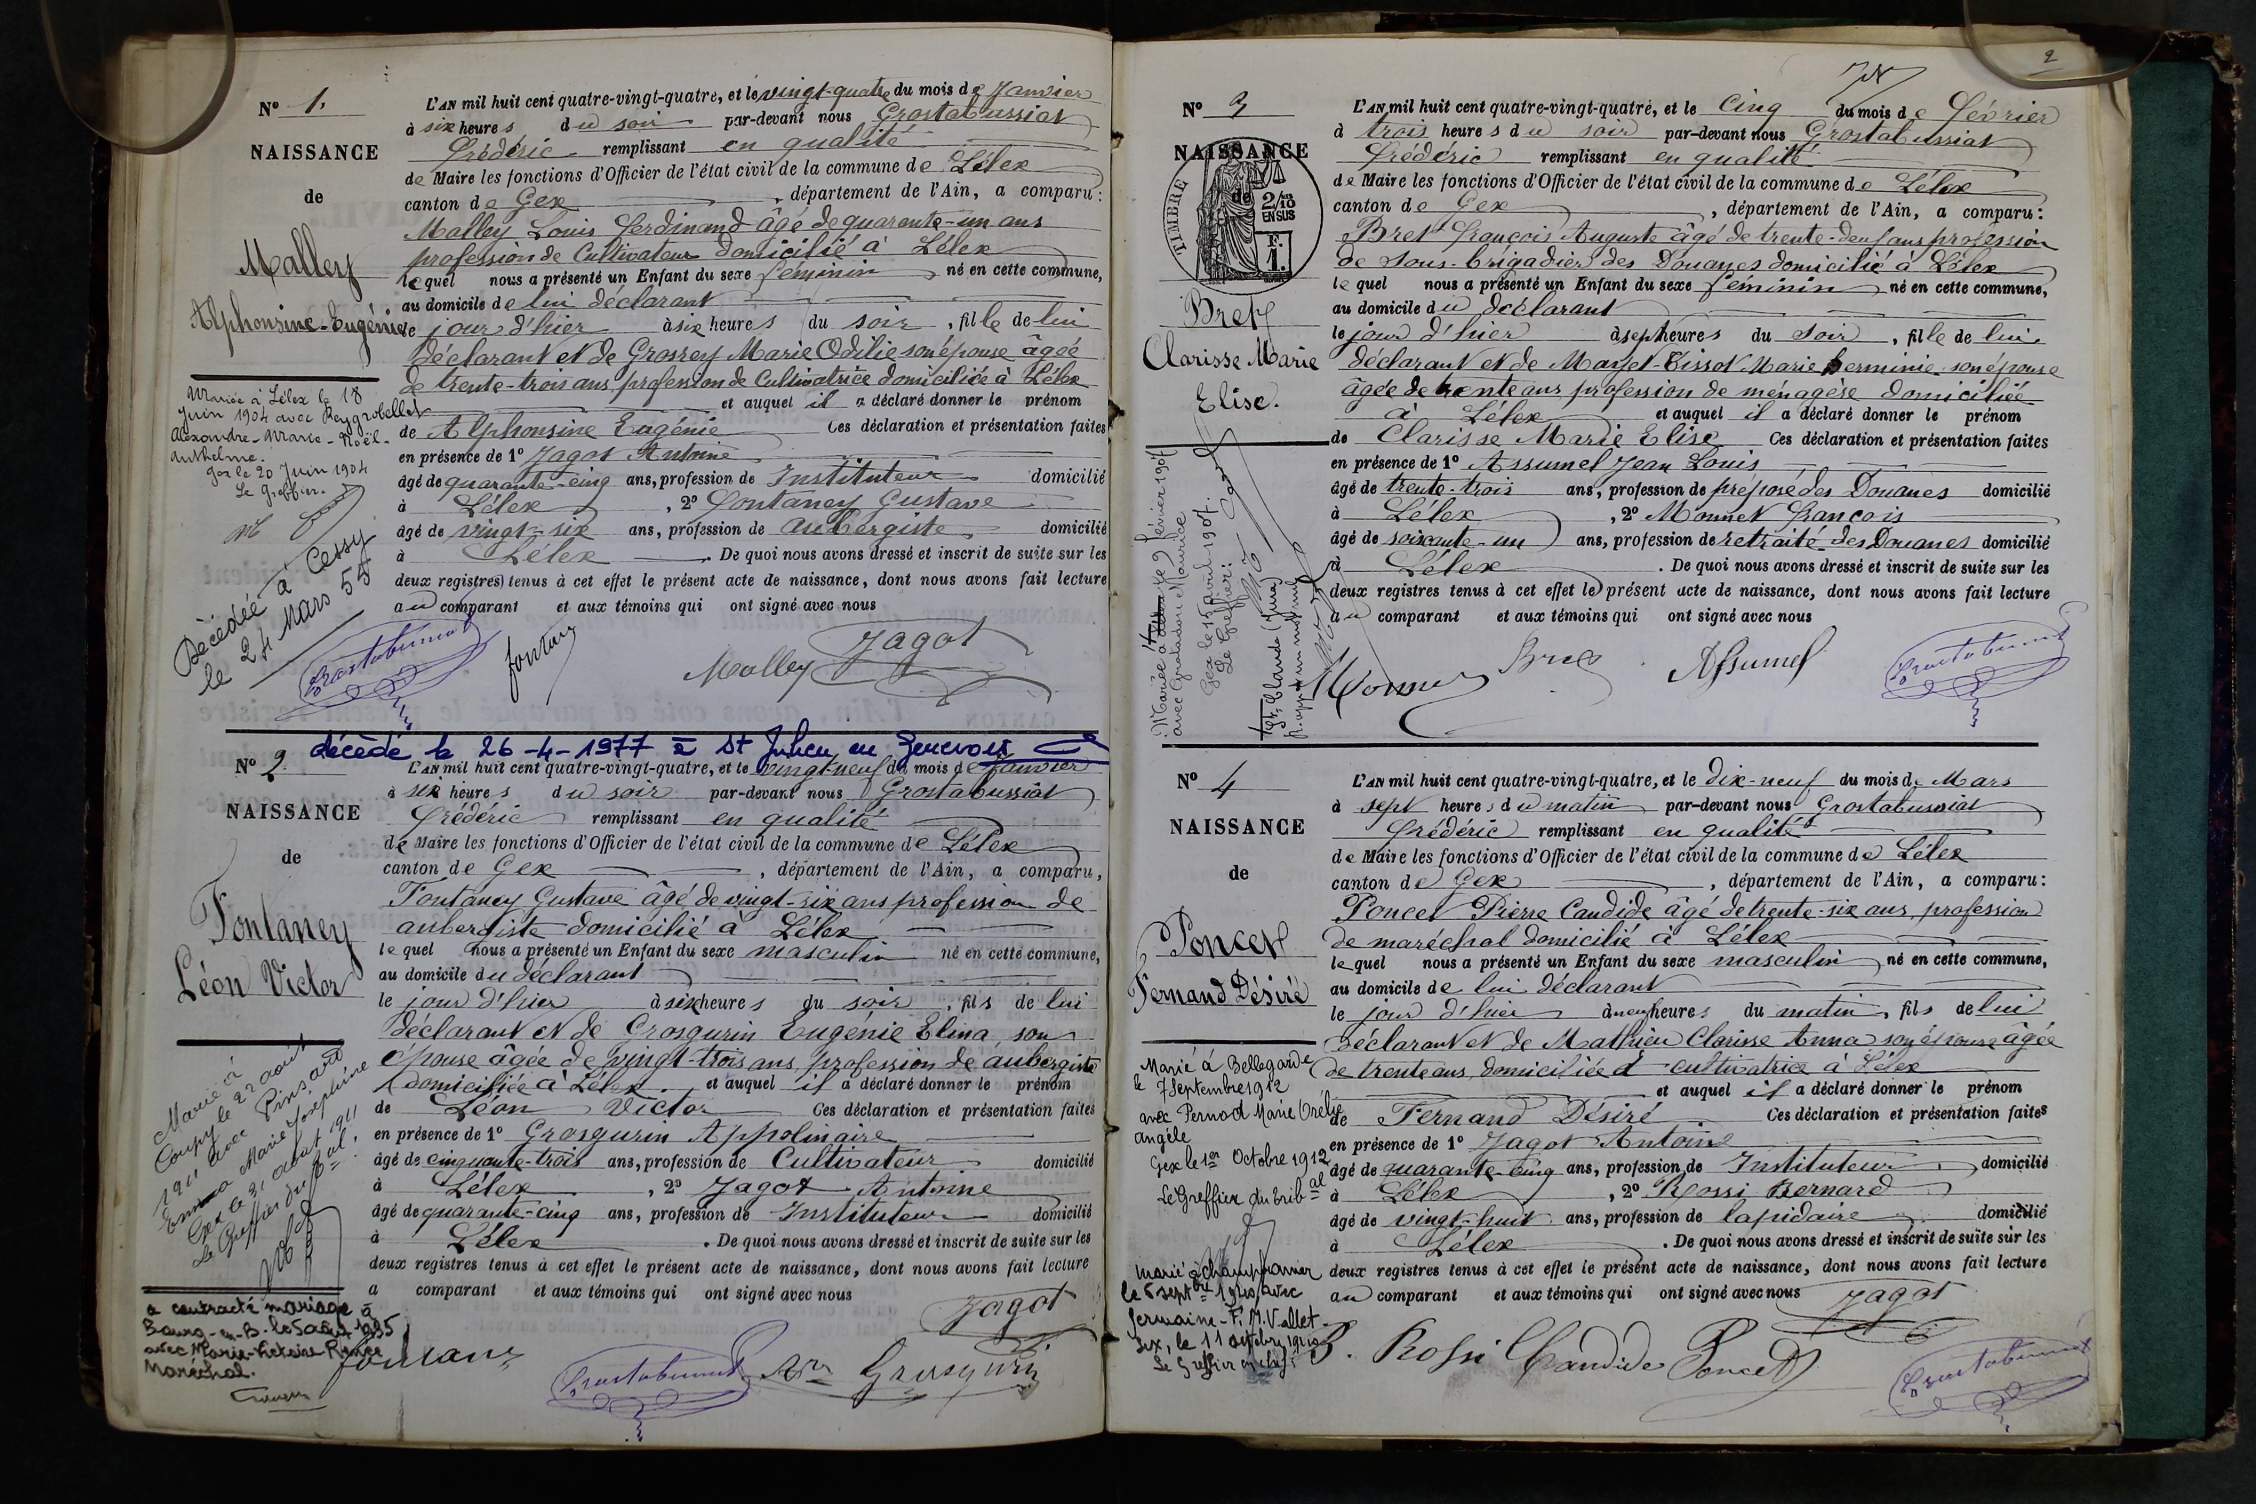 Nº 1.
NAISSANCE
de
Malley
Alphonsine-Eugénie
Mariée à Lélex le 18
Juin 1904 avec Reygrobellet
Alexandre-Marie-Noël-
Anthelme.
Gex le 20 Juin 1904
Le Greffier.
Décédée à Cessy
le 24 Mars 55
L'AN mil huit cent quatre-vingt-quatre, et le vingt-quatre du mois de Janvier
à six heures du soir par-devant nous Grostabussiat
Frédéric remplissant en qualité
de Maire les fonctions d'Officier de l'état civil de la commune de Lélex
canton de Gex, département de l'Ain, a comparu :
Malley Louis Ferdinand âgé de quarante-un ans
profession de Cultivateur domicilié à Lélex
lequel nous a présenté un Enfant du sexe féminin né en cette commune,
au domicile de lui déclarant
le jour d'hier à six heures du soir, fille de lui
déclarant et de Grossey Marie Odilie son épouse âgée
de trente-trois ans profession de Cultivatrice domiciliée à Lélex
et auquel il a déclaré donner le prénom
de Alphonsine Eugénie Ces déclaration et présentation faites
en présence de 1º Jagot Antoine
âgé de quarante-cinq ans, profession de Instituteur domicilié
à Lélex, 2º Fontaney Gustave
âgé de vingt-six ans, profession de aubergiste domicilié
à Lélex. De quoi nous avons dressé et inscrit de suite sur les
deux registres tenus à cet effet le présent acte de naissance, dont nous avons fait lecture
au comparant et aux témoins qui ont signé avec nous
Grostabussiat Fontaney Malley Jagot
décédé le 26-4-1977 à St Julien en Genevois
Nº 2.
NAISSANCE
de
Fontaney
Léon Victor
Marié à
Coupy le 22 août
1911 avec Pinsard
Emma Marie Joséphine
Gex le 31 août 1911
Le Greffier du Tbal.
a contracté mariage à
Bourg-en-B. le 5 août 1935
avec Marie-Victoire Prince
Maréchal.
L'AN mil huit cent quatre-vingt-quatre, et le vingt-neuf du mois de Janvier
à six heures du soir par-devant nous Grostabussiat
Frédéric remplissant en qualité
de Maire les fonctions d'Officier de l'état civil de la commune de Lélex
canton de Gex, département de l'Ain, a comparu,
Fontaney Gustave âgé de vingt-six ans profession de
aubergiste domicilié à Lélex
lequel nous a présenté un Enfant du sexe masculin né en cette commune,
au domicile du déclarant
le jour d'hier à six heures du soir, fils de lui
déclarant et de Grosgurin Eugénie Elina son
épouse âgée de vingt-trois ans profession de aubergiste
domiciliée à Lélex. et auquel il a déclaré donner le prénom
de Léon Victor Ces déclaration et présentation faites
en présence de 1º Grosgurin Appolinaire
âgé de cinquante-trois ans, profession de Cultivateur domicilié
à Lélex, 2º Jagot Antoine
âgé de quarante-cinq ans, profession de Instituteur domicilié
à Lélex. De quoi nous avons dressé et inscrit de suite sur les
deux registres tenus à cet effet le présent acte de naissance, dont nous avons fait lecture
a comparant et aux témoins qui ont signé avec nous
Jagot
Fontaney Grostabussiat Grosgurin
2
Nº 3
NAISSANCE
de
TIMBRE
2/10
EN SUS
F.
1.
Bret
Clarisse Marie
Elise.
Mariée à le 9 février 1907
avec Grandador Maurice
Gex le 15 avril 1907.
Le Greffier:
St Claude (Jura)
L'AN mil huit cent quatre-vingt-quatre, et le Cinq du mois de Février
à trois heures du soir par-devant nous Grostabussiat
Frédéric remplissant en qualité
de Maire les fonctions d'Officier de l'état civil de la commune de Lélex
canton de Gex, département de l'Ain, a comparu :
Bret François Auguste âgé de trente-deux ans profession
de Sous-brigadier des Douanes domicilié à Lélex
lequel nous a présenté un Enfant du sexe féminin né en cette commune,
au domicile du déclarant
le jour d'hier à sept heures du soir, fille de lui
déclarant et de Mayet-Tissot Marie herminie son épouse
âgée de trente ans profession de ménagère domiciliée
à Lélex et auquel il a déclaré donner le prénom
de Clarisse Marie Elise Ces déclaration et présentation faites
en présence de 1º Assumel Jean Louis
âgé de trente-trois ans, profession de préposé des Douanes domicilié
à Lélex, 2º Monnet François
âgé de soixante-un ans, profession de retraité des Douanes domicilié
à Lélex. De quoi nous avons dressé et inscrit de suite sur les
deux registres tenus à cet effet le présent acte de naissance, dont nous avons fait lecture
au comparant et aux témoins qui ont signé avec nous
Monnet Bret Assumel Grostabussiat
Nº 4
NAISSANCE
de
Poncet
Fernand Désiré
Marié à Bellegarde
le 7 Septembre 1912
avec Pernod Marie Orélie
Angèle
Gex le 1er Octobre 1912
Le Greffier du Tribal
Marié à Champfromier
le 5 septbre 1940 avec
Germaine-F. M. Vallet.
Gex, le 11 octobre 1940
Le Greffier en chef:
L'AN mil huit cent quatre-vingt-quatre, et le dix-neuf du mois de Mars
à sept heures du matin par-devant nous Grostabussiat
Frédéric remplissant en qualité
de Maire les fonctions d'Officier de l'état civil de la commune de Lélex
canton de Gex, département de l'Ain, a comparu :
Poncet Pierre Candide âgé de trente-six ans, profession
de maréchal domicilié à Lélex
lequel nous a présenté un Enfant du sexe masculin né en cette commune,
au domicile de lui déclarant
le jour d'hier à neuf heures du matin, fils de lui
déclarant et de Mathieu Clarisse Anna son épouse âgée
de trente ans domiciliée et cultivatrice à Lélex
et auquel il a déclaré donner le prénom
de Fernand Désiré Ces déclaration et présentation faites
en présence de 1º Jagot Antoine
âgé de quarante-cinq ans, profession de Instituteur domicilié
à Lélex, 2º Rossi Bernard
âgé de vingt-huit ans, profession de lapidaire domicilié
à Lélex. De quoi nous avons dressé et inscrit de suite sur les
deux registres tenus à cet effet le présent acte de naissance, dont nous avons fait lecture
au comparant et aux témoins qui ont signé avec nous
Jagot
B. Rossi Candide Poncet Grostabussiat